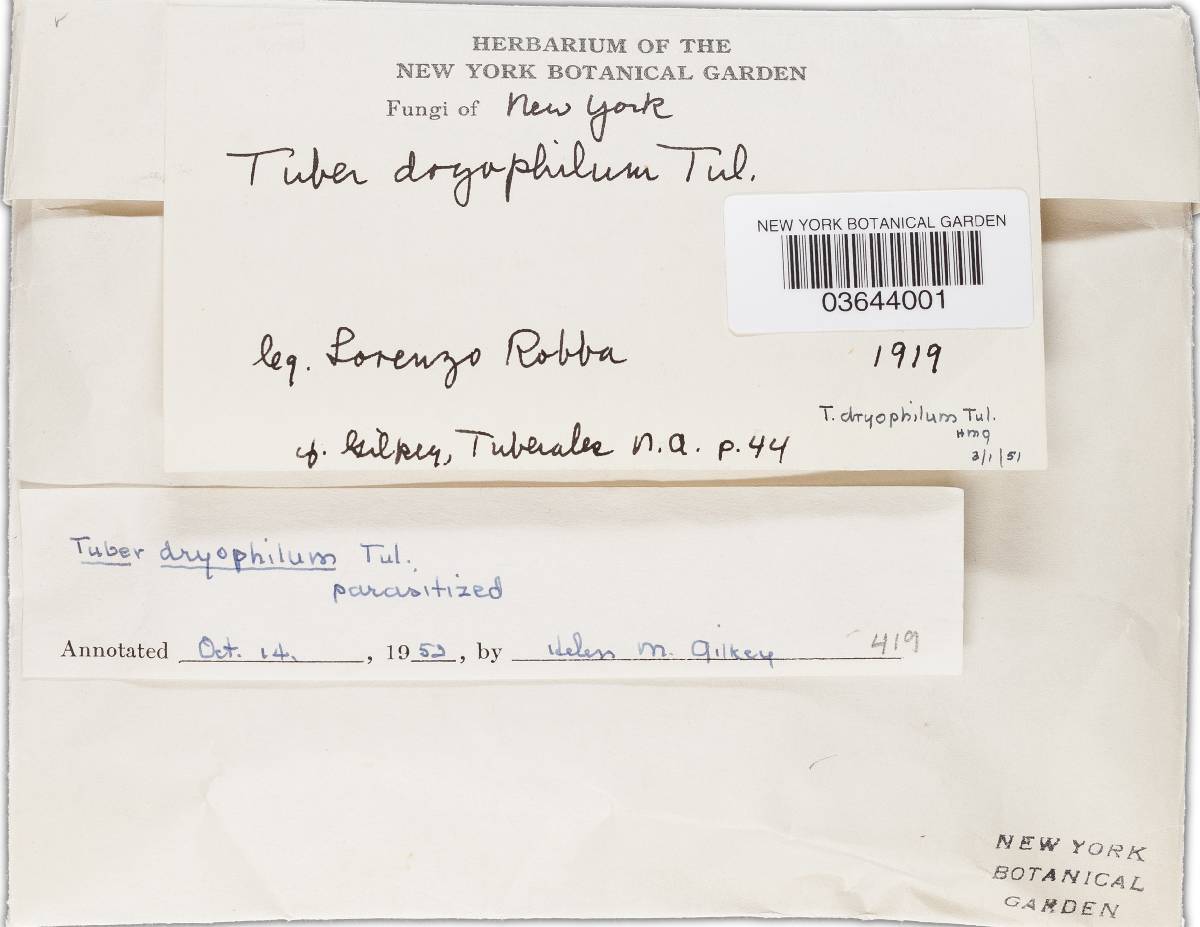 HERBARIUM OF THE
NEW YORK BOTANICAL GARDEN
Fungi of New York
Tuber dryophilum Tul.
NEW YORK BOTANICAL GARDEN
03644001
leg. Lorenzo Robba 1919
cf. Gilkey, Tuberales N.A. p. 44
T. dryophilum Tul.
HMG
3/1/51
Tuber dryophilum Tul.
parasitized
Annotated Oct. 14, 1952, by Helen M. Gilkey 419
NEW YORK
BOTANICAL
GARDEN